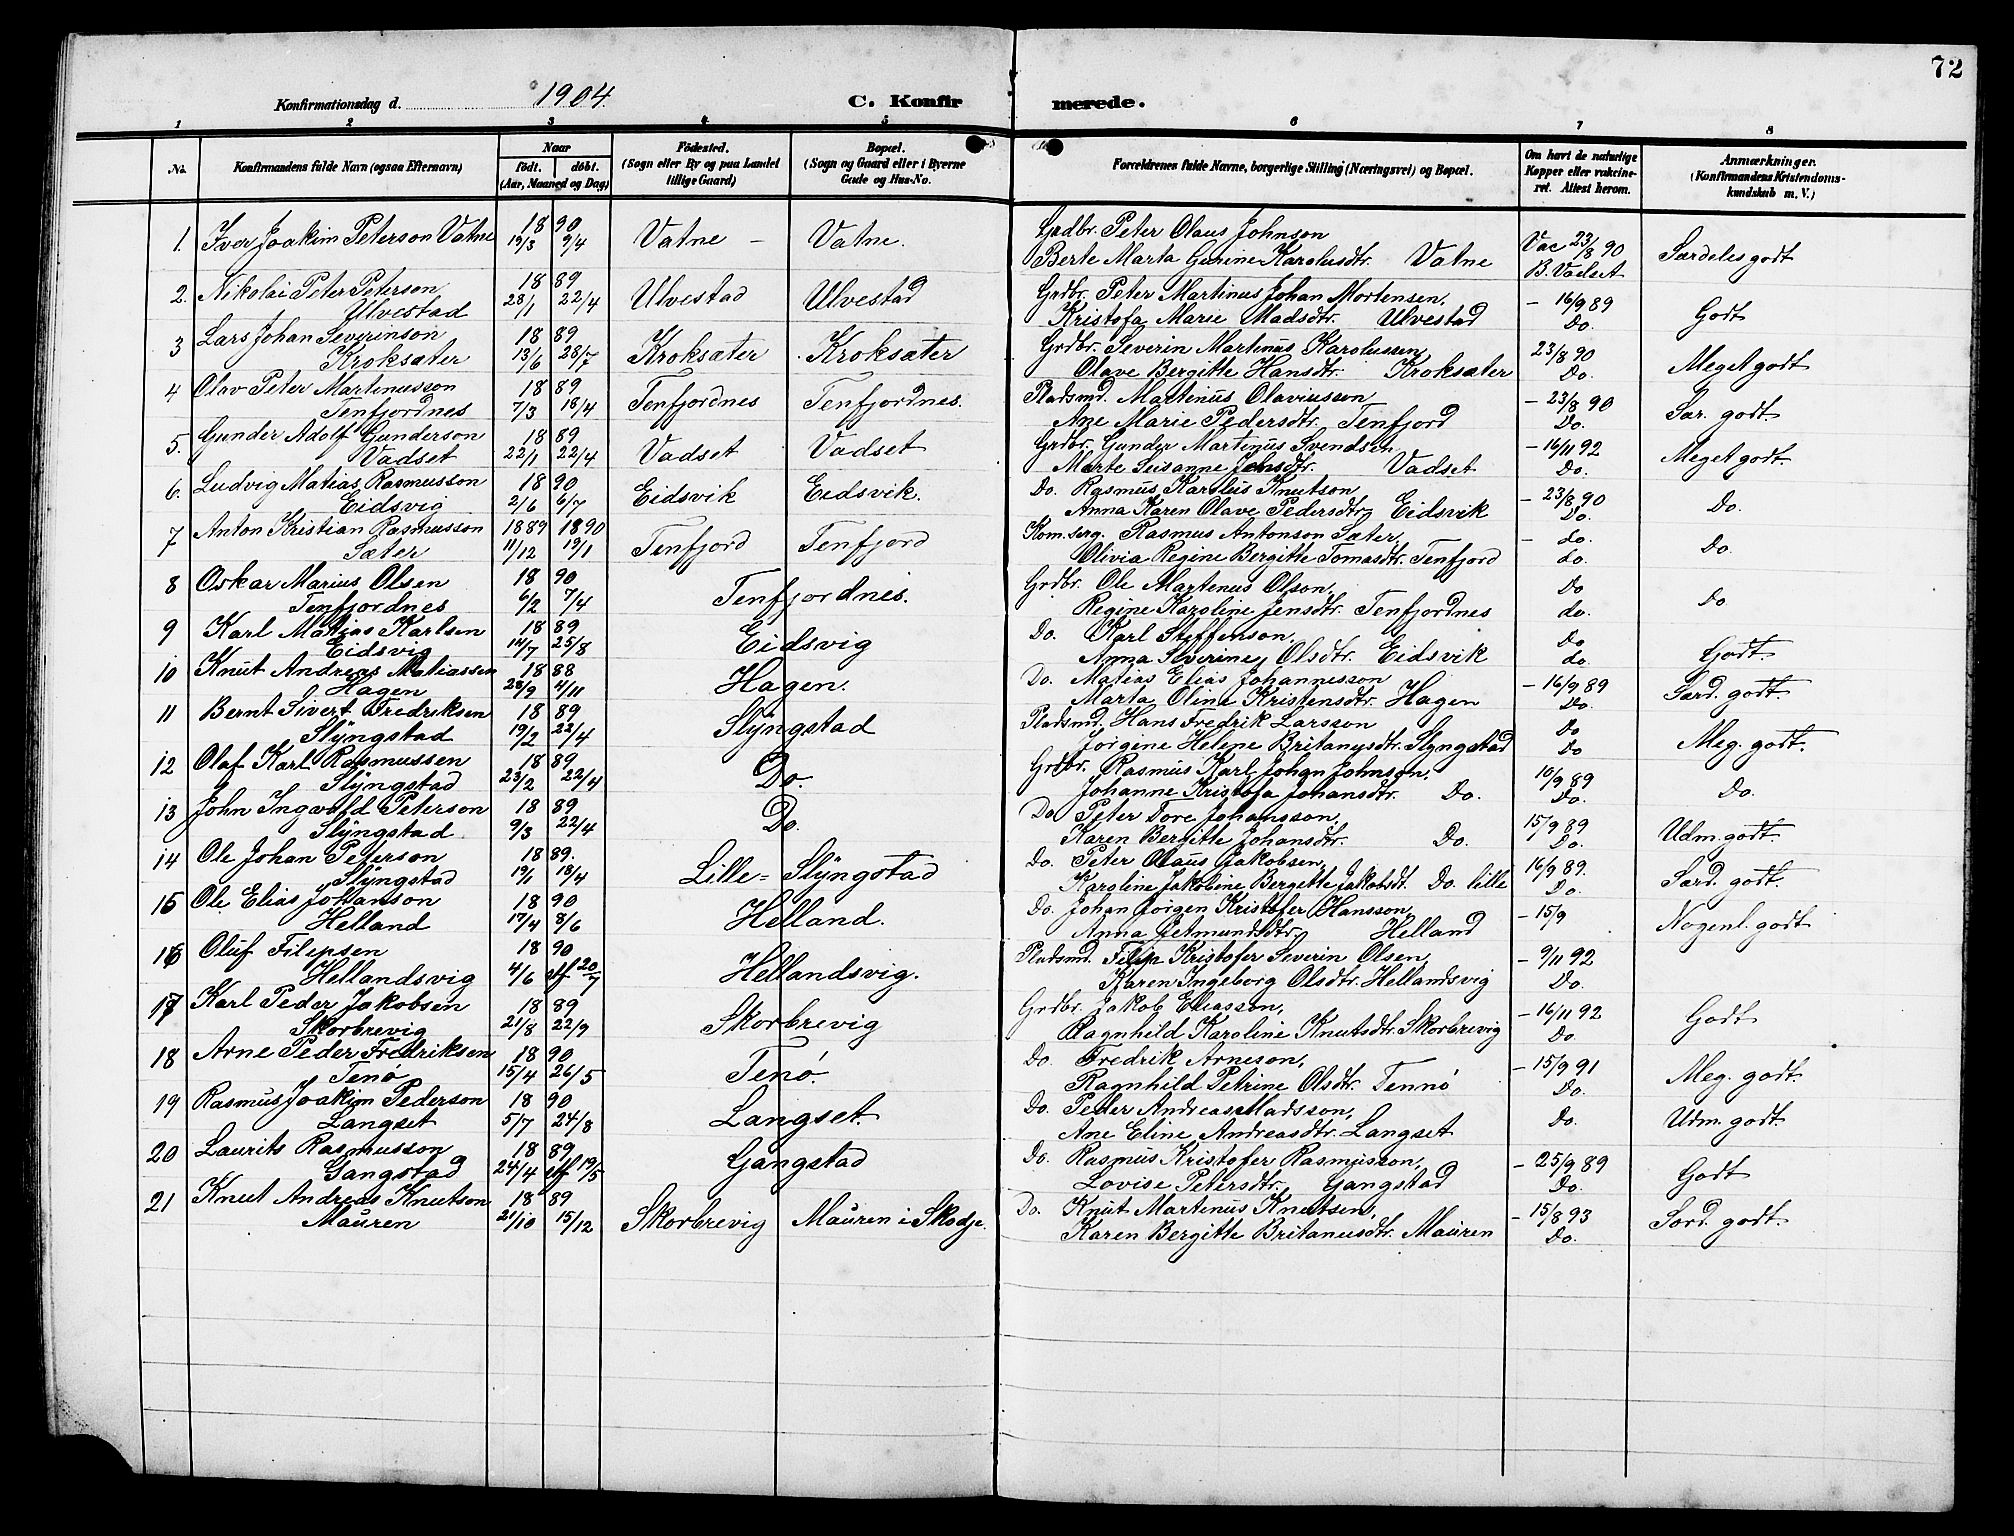 72
Konfirmationsdag d. 1904.
C. Konfirmerede.
1 2 3 4 5 6 7 8
No.
Konfirmandens fulde Navn (ogsaa Efternavn)
Naar
født. døbt.
(Aar, Maaned og Dag)
Fødested.
(Sogn eller By og paa Landet
tillige Gaard)
Bopæl.
(Sogn og Gaard eller i Byerne
Gade og Hus-No.
Forældrenes fulde Navne, borgerlige Stilling (Næringsvei) og Bopæl.
Om havt de naturlige
Kopper eller vakcine-
ret. Attest herom.
Anmærkninger.
(Konfirmandens Kristendoms-
kundskab m. V.)
1. Iver Joakim Peterson Vatne 1890 19/3 9/4 Vatne - Vatne. Grdbr. Peter Olaus Johnson
Berte Marta Gurine Karolusdtr. Vatne Vac 23/8 90 B. Vadset Særdeles godt
2. Nikolai Peter Peterson 1889 Grdbr. Peter Martinus Johan Mortensen,
Ulvestad 28/1 22/4 Ulvestad Ulvestad Kristofa Marie Madsdtr. Ulvestad - 16/9 89 Do. Godt
3 Lars Johan Severinson 1889 Grdbr. Severin Martinus Karolussen,
Kroksæter 13/6 28/7 Kroksæter Kroksæter Olave Bergitte Hansdtr. Kroksæter 23/8 90 Do. Meget godt
4 Olav Peter Martinusson 1889 Pladsmd. Martinus Olaviusson
Tenfjordnes 7/3 18/4 Tenfjordnes Tenfjordnes. Ane Marie Pedersdtr. Tenfjord - 23/8 90 Do. Sær. godt
5. Gunder Adolf Gunderson 1889 Grdbr. Gunder Martinus Svendsen
Vadset 22/1 22/4 Vadset Vadset Marte Seisanne Jensdtr. Vadset - 16/11 92 Do. Meget godt.
6. Ludvig Matias Rasmusson 1890 Do. Rasmus Karolus Knutson
Eidsvig 2/6 6/7 Eidsvik Eidsvik. Anna Karen Olave Pedersdtr. Eidsvik - 23/8 90 Do. Do.
7 Anton Kristian Rasmusson 1889 1890 Kom.serg. Rasmus Antonson Sæter,
Sæter 11/12 19/1 Tenfjord Tenfjord Olivia Regine Bergitte Tomasdtr. Tenfjord - do. do. Do.
8 Oskar Marius Olsen 1890 Grdbr. Ole Martenus Olson,
Tenfjordnes 6/2 7/4 Tenfjordnes. Regine Karoline Jensdtr. Tenfjordnes Do do. Do
9 Karl Matias Karlsen 1889 Do. Karl Steffenson,
Eidsvig 14/7 25/8 Eidsvig Anna Severine Olsdtr. Eidsvik Do do. Godt.
10 Knut Andreas Matiassen 1888 Do. Matias Elias Johannesson
Hagen 28/9 4/11 Hagen. Marta Oline Kristensdtr. Hagen - 16/9 89 Do. Særd. godt.
11 Bernt Sivert Fredriksen 1889 Pladsmd. Hans Fredrik Larsson
Slyngstad 19/2 22/4 Slyngstad Jørgine Helene Britanusdtr. Slyngstad Do Do Meg. godt.
12 Olaf Karl Rasmussen 1889 Grdbr. Rasmus Karl Johan Johnson,
Slyngstad 23/2 22/4 Do. Johanne Kristofa Johansdtr. Do. 10/9 89 Do. Do.
13 John Ingvald Peterson 1889 Do Peter Tore Johansson,
Slyngstad 9/3 22/4 Do. Karen Bergitte Johansdtr. Do. 15/9 89 Do. Udm. godt.
14 Ole Johan Peterson 1889. Do. Peter Olaus Jakobsen,
Slyngstad 19/1 18/4 Lille= Slyngstad Karoline Jakoline Bergitte Jakobsdt. Do. lille 16/9 89. Do. Særd. godt.
15 Ole Elias Johanson 1890 Do. Johan Jørgen Kristofer Hansson,
Helland 17/4 8/6 Helland. Anna Jetmundsdtr. Helland - 15/9 Nogenl. godt
16 Oluf Filipsen 1890 Pladsmd. Filip Kristofer Severin Olsen,
Hellandsvig 4/6 20/7 Hellandsvig. Karen Ingeborg Olsdtr. Hellandsvig - 9/11 92 Do.
17 Karl Peder Jakobsen 1889 Grdbr. Jakob Eliasson,
Skorbrevig 21/8 22/9 Skorbrevig Ragnhild Karoline Knutsdtr. Skorbrevig - 16/11 92 Do Godt
18 Arne Peder Fredriksen 1890 Do. Fredrik Arneson,
Tenø 15/4 26/5 Tenø. Ragnhild Petrine Olsdtr. Tennø - 15/9 91 Do. Meg. godt.
19 Rasmus Joakim Pederson 1890 Do. Peder Andreas Madsson,
Langset 5/7 24/8 Langset. Ane Eline Andreasdtr. Langset Do. Udm. godt.
20 Laurits Rasmusson 1889 Do. Rasmus Kristofer Rasmusson,
Gangstad 24/4 19/5 Gangstad Lovise Petersdtr. Gangstad - 25/9 89 Do. Godt
21 Knut Andreas Knutson 1889 Do. Knut Martinus Knutsen,
Mauren 21/10 15/12 Skorbrevig Mauren i Skodje. Karen Bergitte Britanusdtr. Mauren - 15/8 93 Do. Særd. godt.